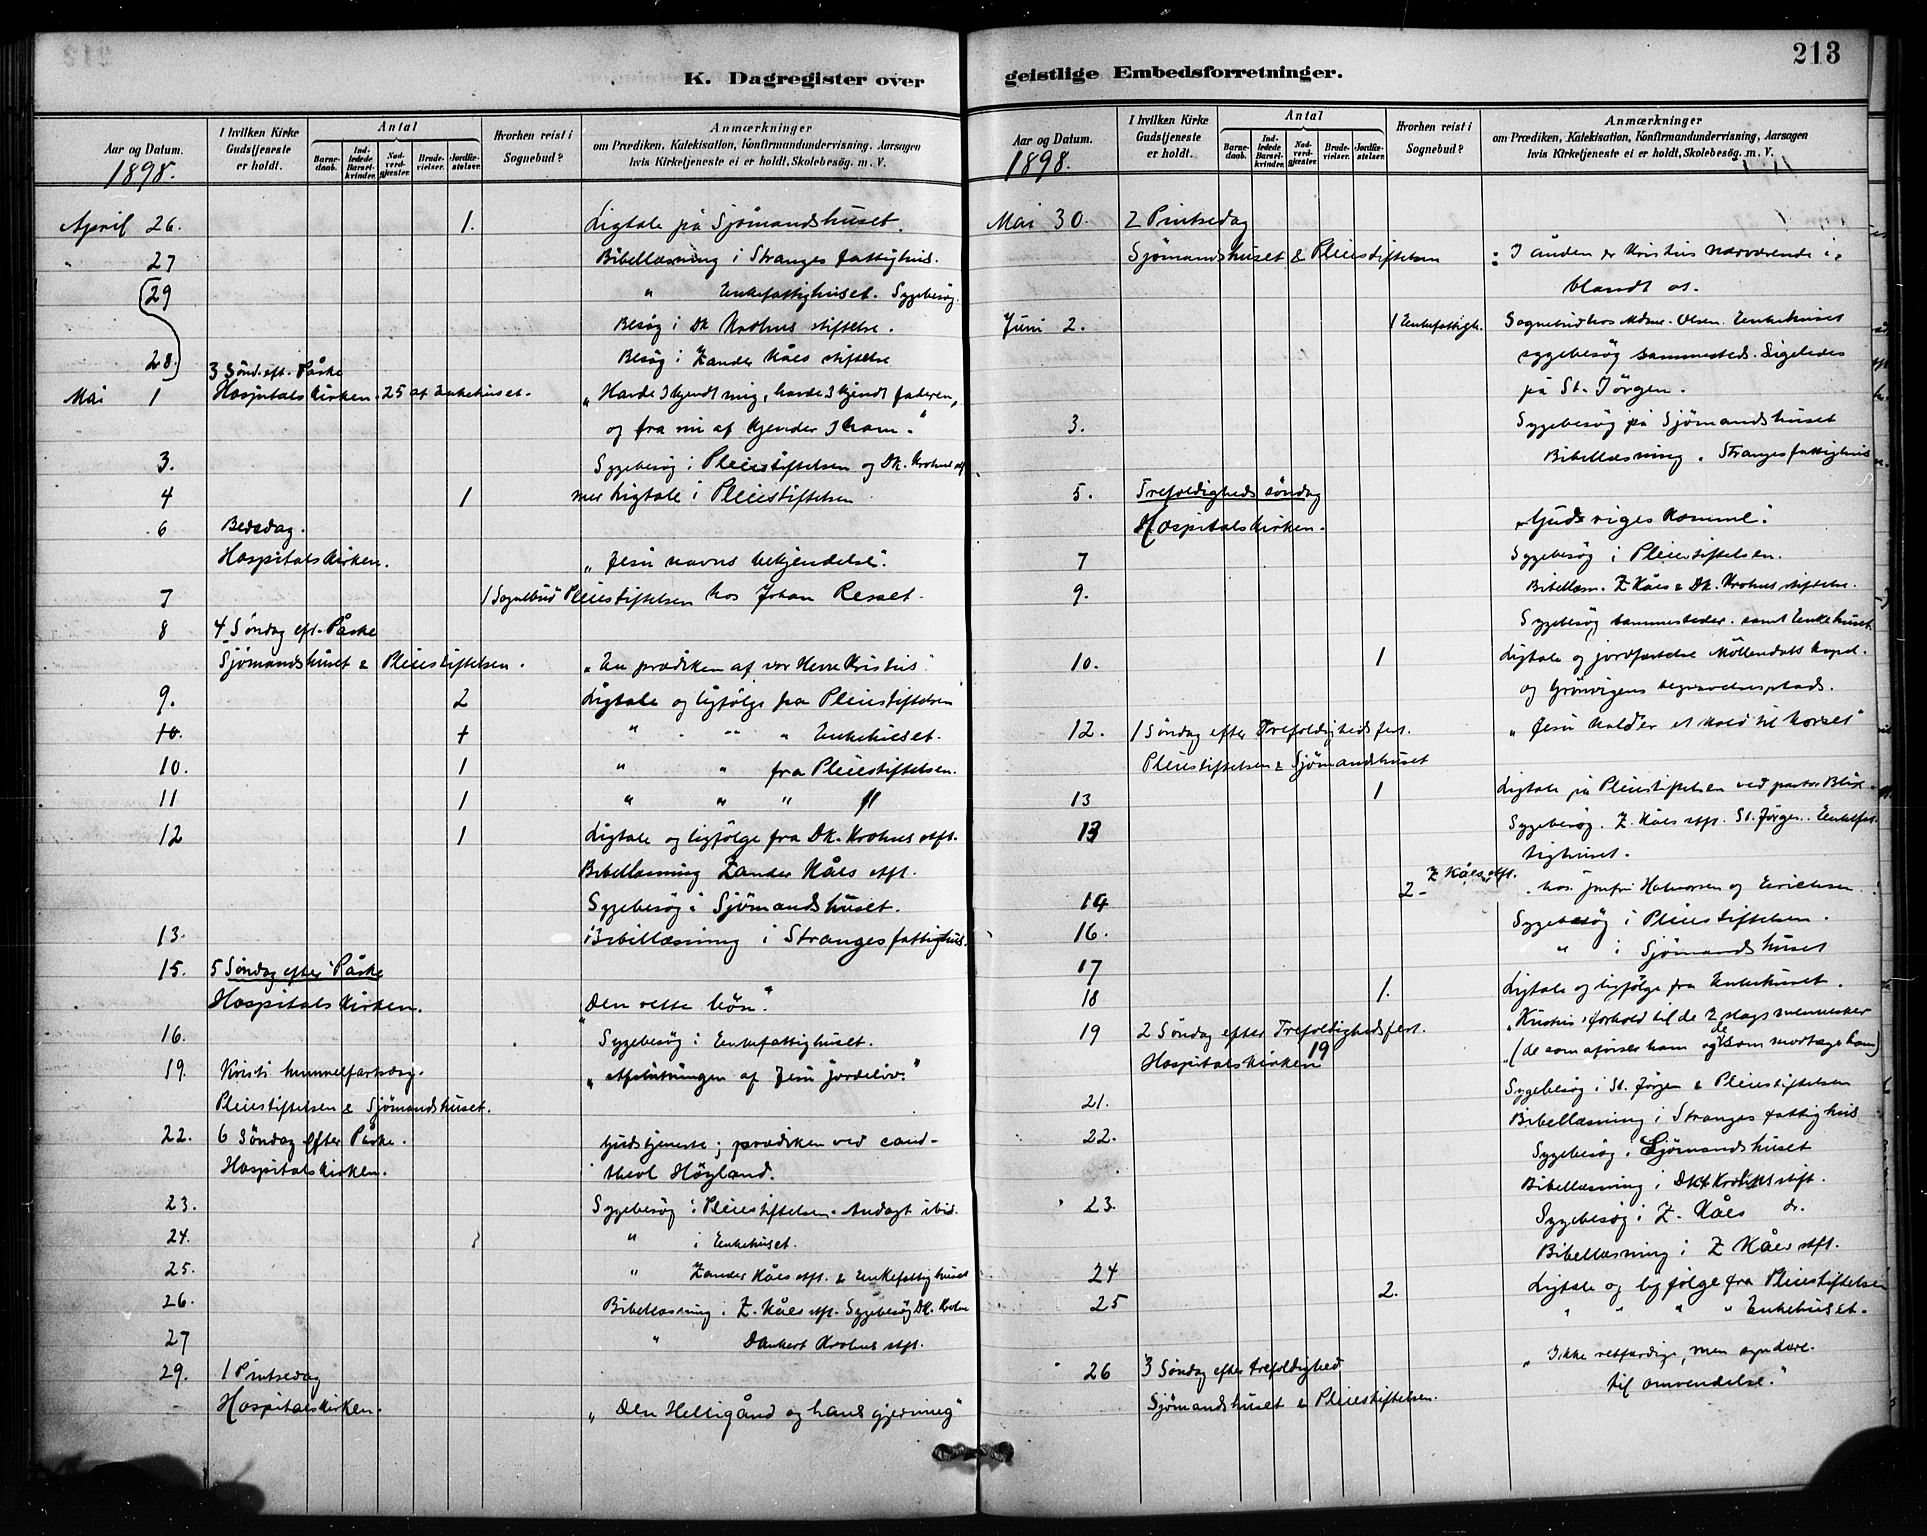 213
K. Dagregister over
geistlige Embedsforretninger.
Aar og Datum.
1898.
I hvilken Kirke Gudstjeneste er holdt.
Antal
Barnedaab.
Indledede Barselkvinder.
Nadverdgjester.
Brudevielser.
Jordfæstelser.
Hvorhen reist i Sognebud?
Anmærkninger
om Prædiken, Katekisation, Konfirmandundervisning, Aarsagen
hvis Kirketjeneste ei er holdt, Skolebesøg. m. V.
April 26. 1. Ligtale på Sjømandshuset.
" 27 Bibellæsning i Stranges fattighus.
29 " Enkefattighuset. Sygebesøg.
Besøg i Dk Krohns stiftelse.
28. Besøg i Zander Kåes stiftelse
3 Sønd. eft. Påske
Mai 1 Hospitalskirken. 25 af Enkehuset. „Havde I kjendt mig, havde I kjendt faderen,
og fra nu af kjender I ham."
3. Sygebesøg i Pleiestiftelsen og Dk. Krohns stf
4 1 Ligtale i Pleiestiftelsen
6 Bededag.
Hospitalskirken. „Jesu navns bekjendelse".
7 1 Sognebud Pleiestiftelsen hos Johan Resset.
8 4 Søndag eft. Påske
Sjømandshuset & Pleiestiftelsen. „En prædiken af vor Herre Kristus"
9. 2 Ligtale og ligfølge fra Pleiestiftelsen
10. 1 " " " Enkehuset.
10. 1 " " fra Pleiestiftelsen.
11 1 " " "
12 1 Ligtale og ligfølge fra Dk. Krohns stft.
Bibellæsning Zander Kåes stft.
Sygebesøg i Sjømandshuset.
13. Bibellæsning i Stranges fattighus.
15. 5 Søndag efter Påske
Hospitalskirken. „Den rette bøn."
16. Sygebesøg i Enkefattighuset.
19. Kristi himmelfartsdag. „Afslutningen af Jesu jordeliv."
Pleiestiftelsen & Sjømandshuset.
22. 6 Søndag efter Påske. Gudstjeneste; prædiken ved cand.
Hospitalskirken. theol Höyland.
23. Sygebesøg i Pleiestiftelsen. Andagt ibid.
24. " i Enkehuset.
25. " Zander Kåes stft. & Enkefattighuset
26. Bibellæsning. Z. Kåes stft. Sygebesøg Dk. Krohn
27 " Dankert Krohns stft.
29. 1 Pintsedag
Hospitalskirken. „Den Helligånd og hans gjerning"
Aar og Datum.
1898.
I hvilken Kirke Gudstjeneste er holdt.
Antal
Barnedaab.
Indledede Barselkvinder.
Nadverdgjester.
Brudevielser.
Jordfæstelser.
Hvorhen reist i Sognebud?
Anmærkninger
om Prædiken, Katekisation, Konfirmandundervisning, Aarsagen
hvis Kirketjeneste ei er holdt, Skolebesøg. m. V.
Mai 30. 2 Pintsedag
Sjømandshuset & Pleiestiftelsen : I ånden er Kristus nærværende i
blandt os.
Juni 2. 1 Enkefattigh. Sognebud hos Mdme. Olsen. Enkehuset
sygebesøg sammesteds. Ligeledes
på St. Jørgen.
3. Sygebesøg på Sjømandshuset
Bibellæsning. Stranges fattighus
5. Trefoldigheds søndag
Hospitalskirken. „Guds riges komme".
7 Sygebesøg i Pleiestiftelsen.
9. Bibellæsn. Z Kåes & Dk. Krohns stiftelse.
Sygebesøg sammesteder. samt Enkehuset.
10. 1 Ligtale og jordfæstelse Møllendals kapel
og Grønvigens begravelsesplads.
12. 1 Søndag efter Trefoldighedsfest. „Jesu kalder et kald til korset"
Pleiestiftelsen & Sjømandshuset
13 1 Ligtale på Pleiestiftelsen ved pastor Blix
13 Sygebesøg. Z. Kåes stft. St. Jørgen. Enkefat-
tighuset.
14 2 Z Kåes stft. hos jmfr. Halvorsen og Erichsen
16. Sygebesøg i Pleiestiftelsen.
17 " i Sjømandshuset
18 1. Ligtale og ligfølge fra Enkehuset.
19 2 Søndag efter Trefoldighedsfest. „Kristus' forhold til de 2 slags mennesker
Hospitalskirken 19 (de som afviser ham og de som modtage ham)
21. Sygebesøg i St. Jørgen & Pleiestiftelsen
Bibellæsning i Stranges fattighus
22. Sygebesøg i Sjømandshuset
Bibellæsning i Dk Krohns stift.
23. Sygebesøg i Z. Kåes do.
Bibellæsning i Z Kåes stft.
24 Ligtale og ligfølge fra Pleiestiftelsen
25 2. " " " " Enkehuset.
26 3 Søndag efter trefoldighed „Ikke retfærdige, men syndere
Sjømandshuset & Pleiestiftelsen. til omvendelse."